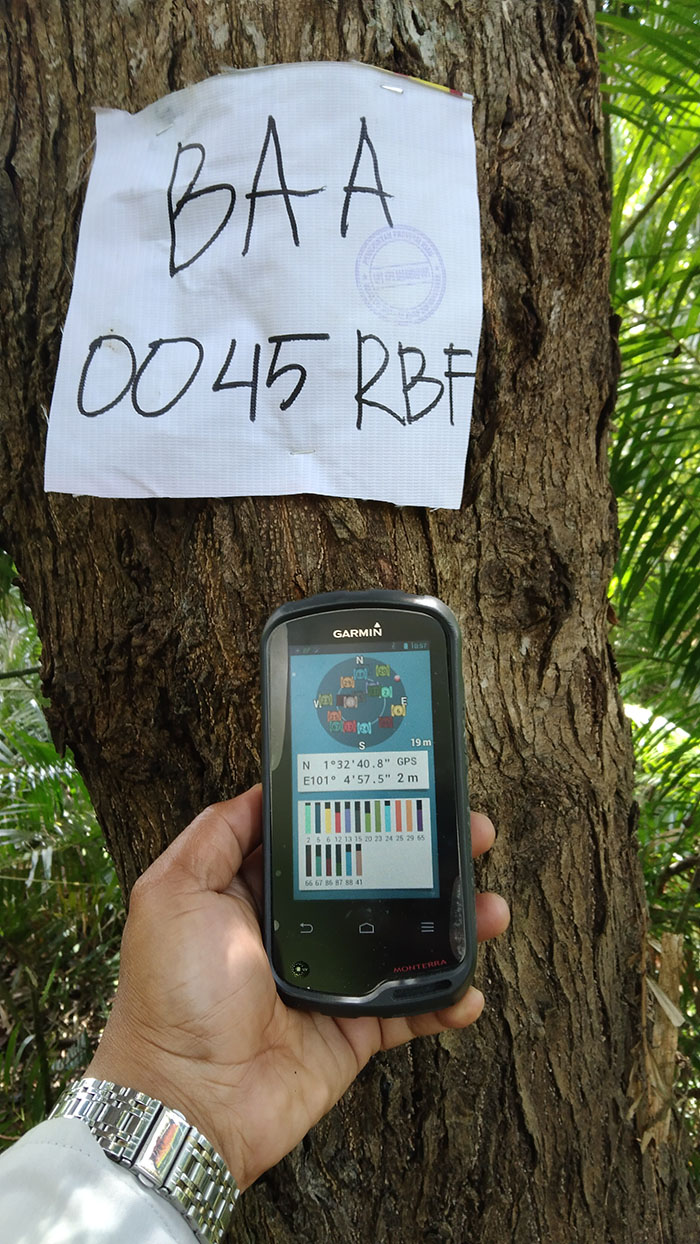 BAA
0045 RBF
GARMIN
N
W E
S
19 m
N 1°32'40.8" GPS
E101° 4'57.5" 2 m
2 5 6 12 13 15 20 23 24 25 29 65
66 67 86 87 88 41
MONTERRA